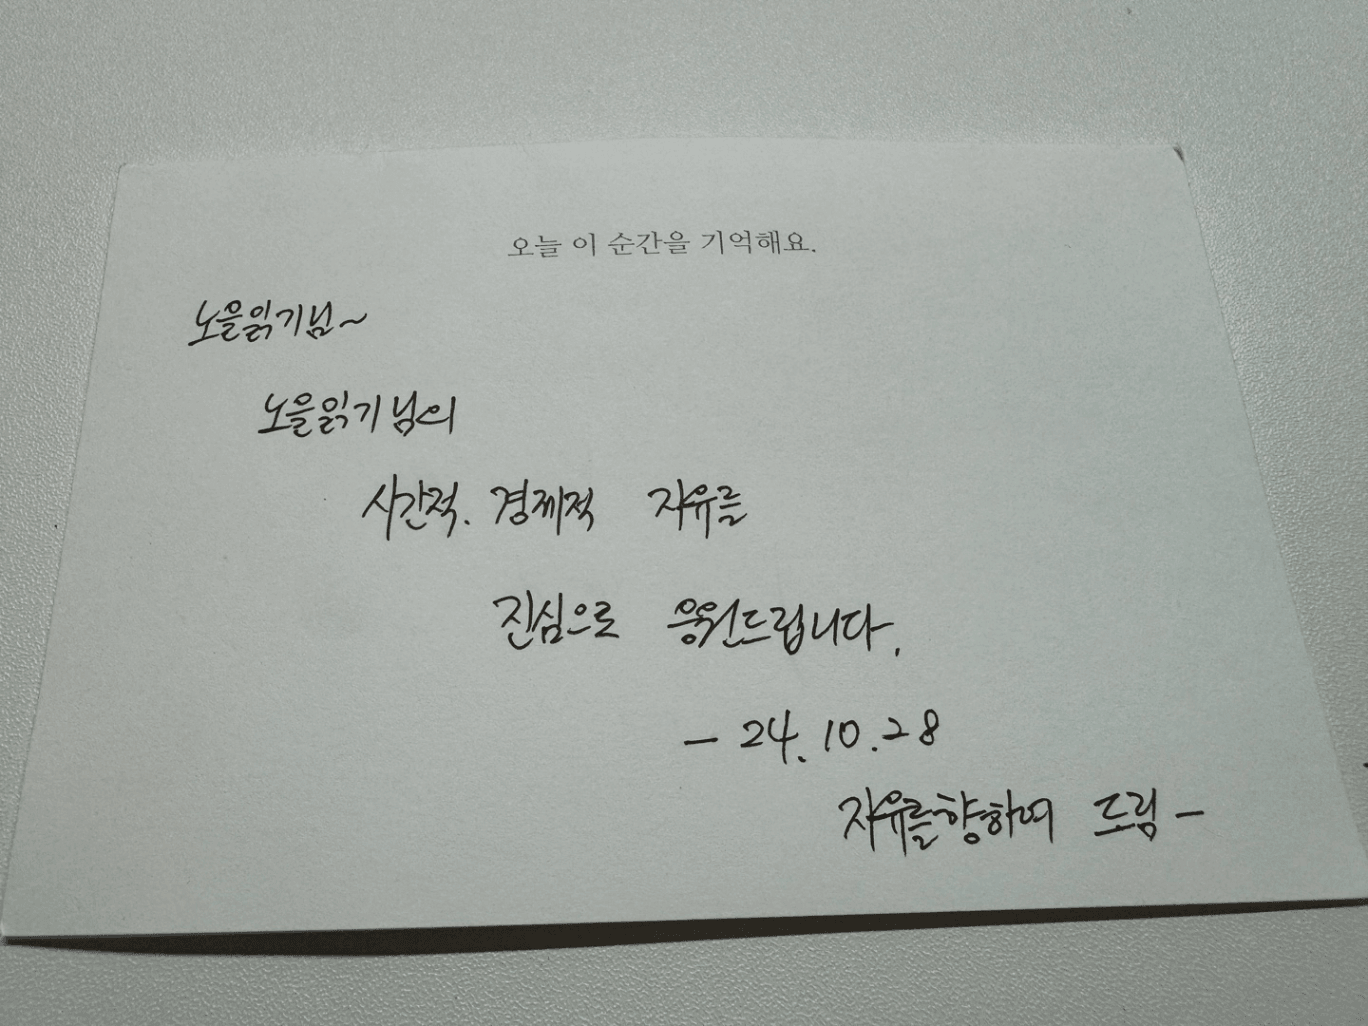 오늘 이 순간을 기억해요.
노을읽기님~
노을읽기님의
시간적. 경제적 자유를
진심으로 응원드립니다.
- 24.10.28
자유를향하여 드림-